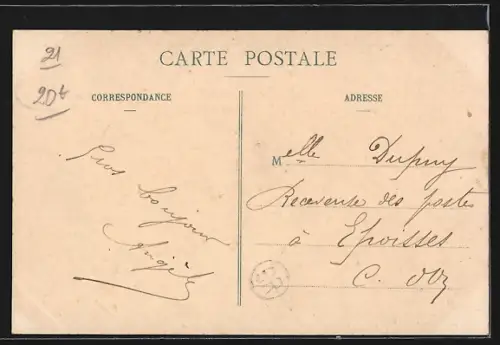 21
20t
CARTE POSTALE
CORRESPONDANCE
Gros bonjour
Angèle
ADRESSE
Melle Dupuy
Receveuse des postes
à Epoisses
C. d'Or